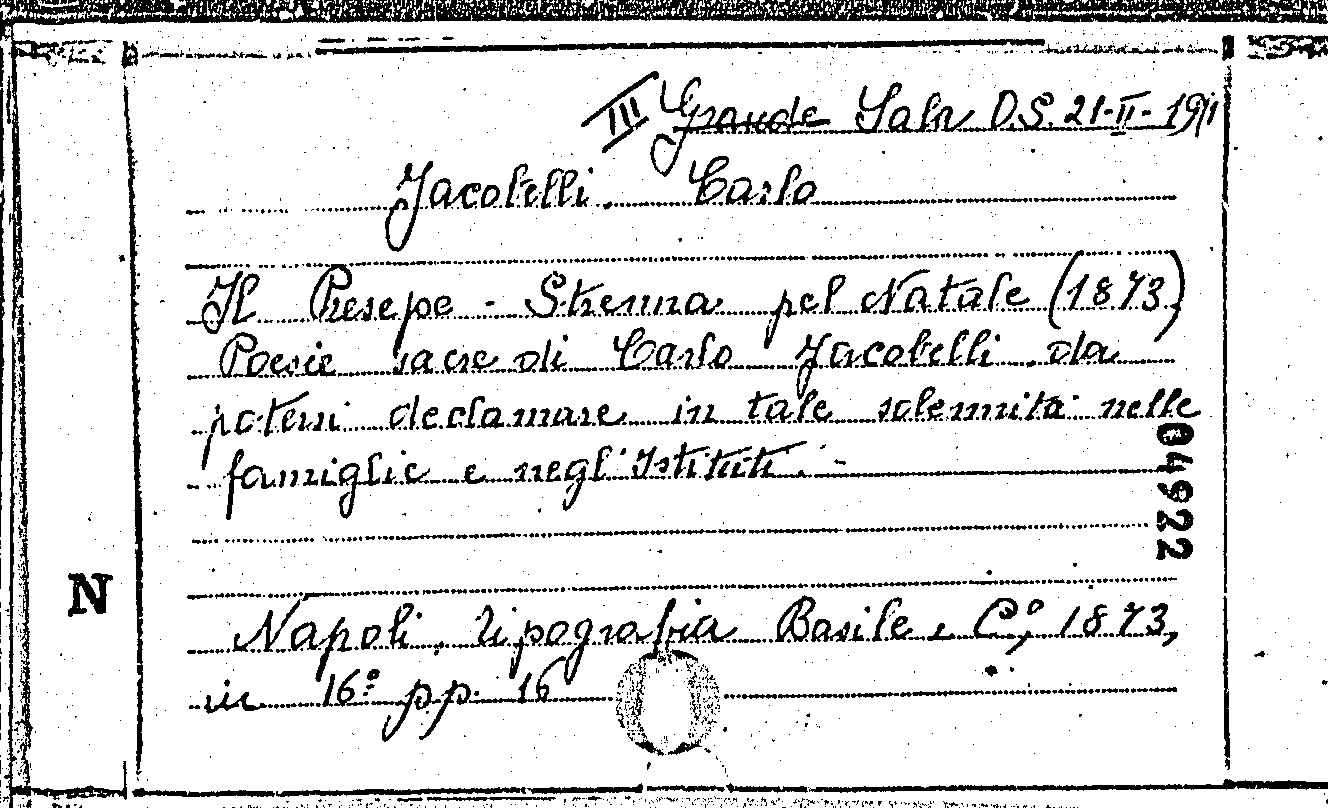 III Grande Sala D.S. 21-II-19(11
Jacobelli. Carlo
Il Presepe - Strenna pel Natale (1873)
Poesie sacre di Carlo Jacobelli da
potersi declamare in tale solennità nelle
famiglie e negl'Istituti. -
04922
N
Napoli, tipografia Basile e C.º, 1873,
in 16º pp. 16